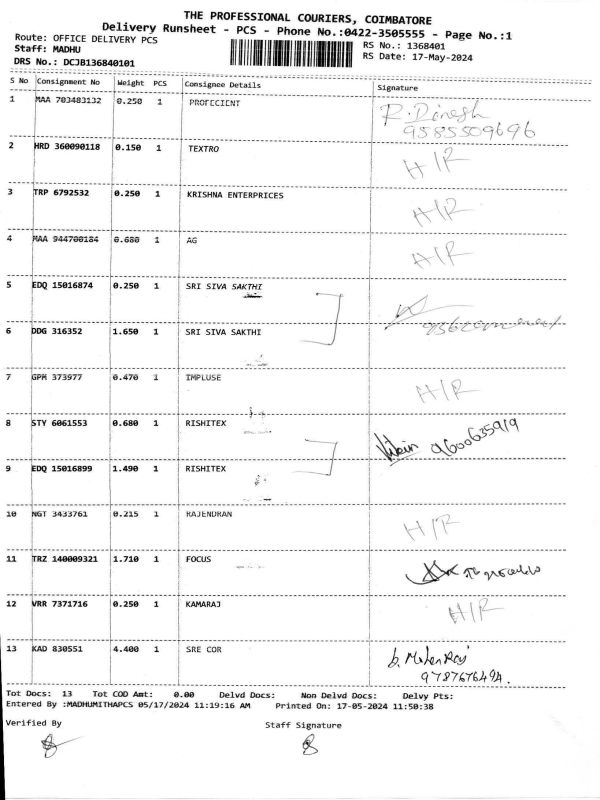 THE PROFESSIONAL COURIERS, COIMBATORE
Delivery Runsheet - PCS - Phone No.:0422-3505555 - Page No.:1
Route: OFFICE DELIVERY PCS
Staff: MADHU
DRS No.: DCJB136840101
RS No.: 1368401
RS Date: 17-May-2024
S No Consignment No Weight PCS Consignee Details Signature
1 MAA 703483132 0.250 1 PROFECIENT R. Dinesh
9585509696
2 HRD 360090118 0.150 1 TEXTRO H/R
3 TRP 6792532 0.250 1 KRISHNA ENTERPRICES H/R
4 MAA 944700184 0.680 1 AG H/R
5 EDQ 15016874 0.250 1 SRI SIVA SAKTHI
6 DDG 316352 1.650 1 SRI SIVA SAKTHI
7 GPM 373977 0.470 1 IMPLUSE H/R
8 STY 6061553 0.680 1 RISHITEX 9600635919
9 EDQ 15016899 1.490 1 RISHITEX
10 NGT 3433761 0.215 1 RAJENDRAN H/R
11 TRZ 140009321 1.710 1 FOCUS
12 VRR 7371716 0.250 1 KAMARAJ H/R
13 KAD 830551 4.400 1 SRE COR b. Mohan Raj
9787676494.
Tot Docs: 13 Tot COD Amt: 0.00 Delvd Docs: Non Delvd Docs: Delvy Pts:
Entered By :MADHUMITHAPCS 05/17/2024 11:19:16 AM Printed On: 17-05-2024 11:50:38
Verified By Staff Signature